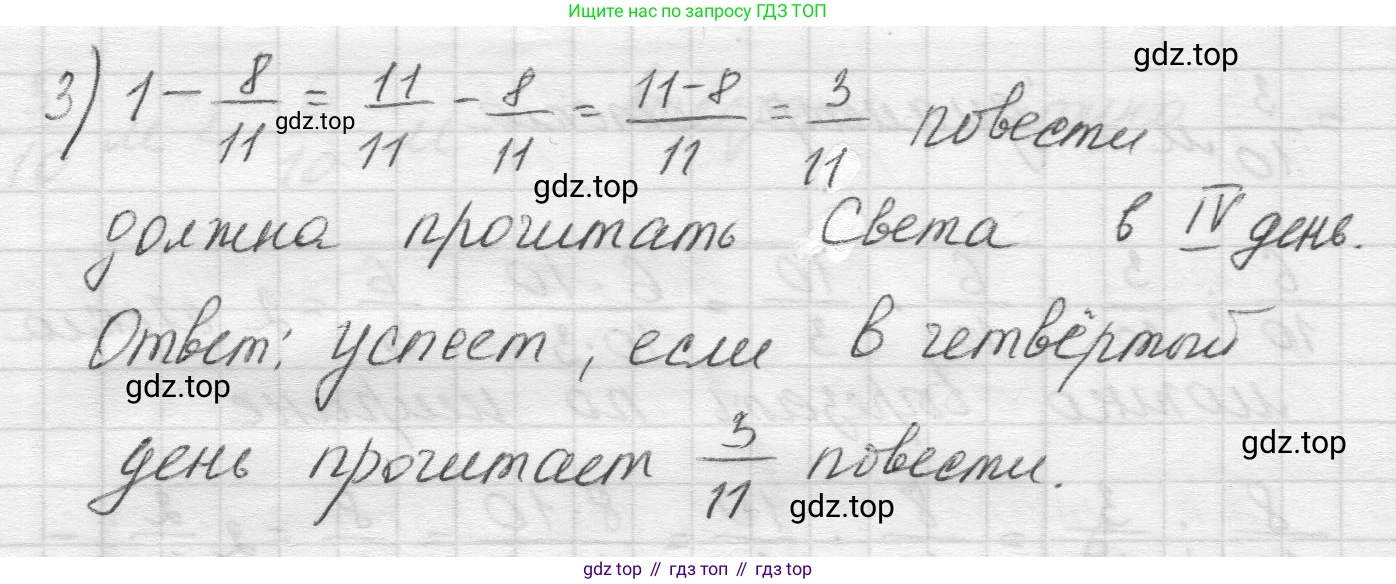 Ищите нас по запросу ГДЗ ТОП
gdz.top
3) 1 - 8/11 = 11/11 - 8/11 = (11-8)/11 = 3/11 повести
gdz.top
gdz.top
должна прочитать Света в IV день.
Ответ: успеет, если в четвёртый
gdz.top
день прочитает 3/11 повести.
gdz.top
gdz.top
gdz top // гдз топ // гдз top